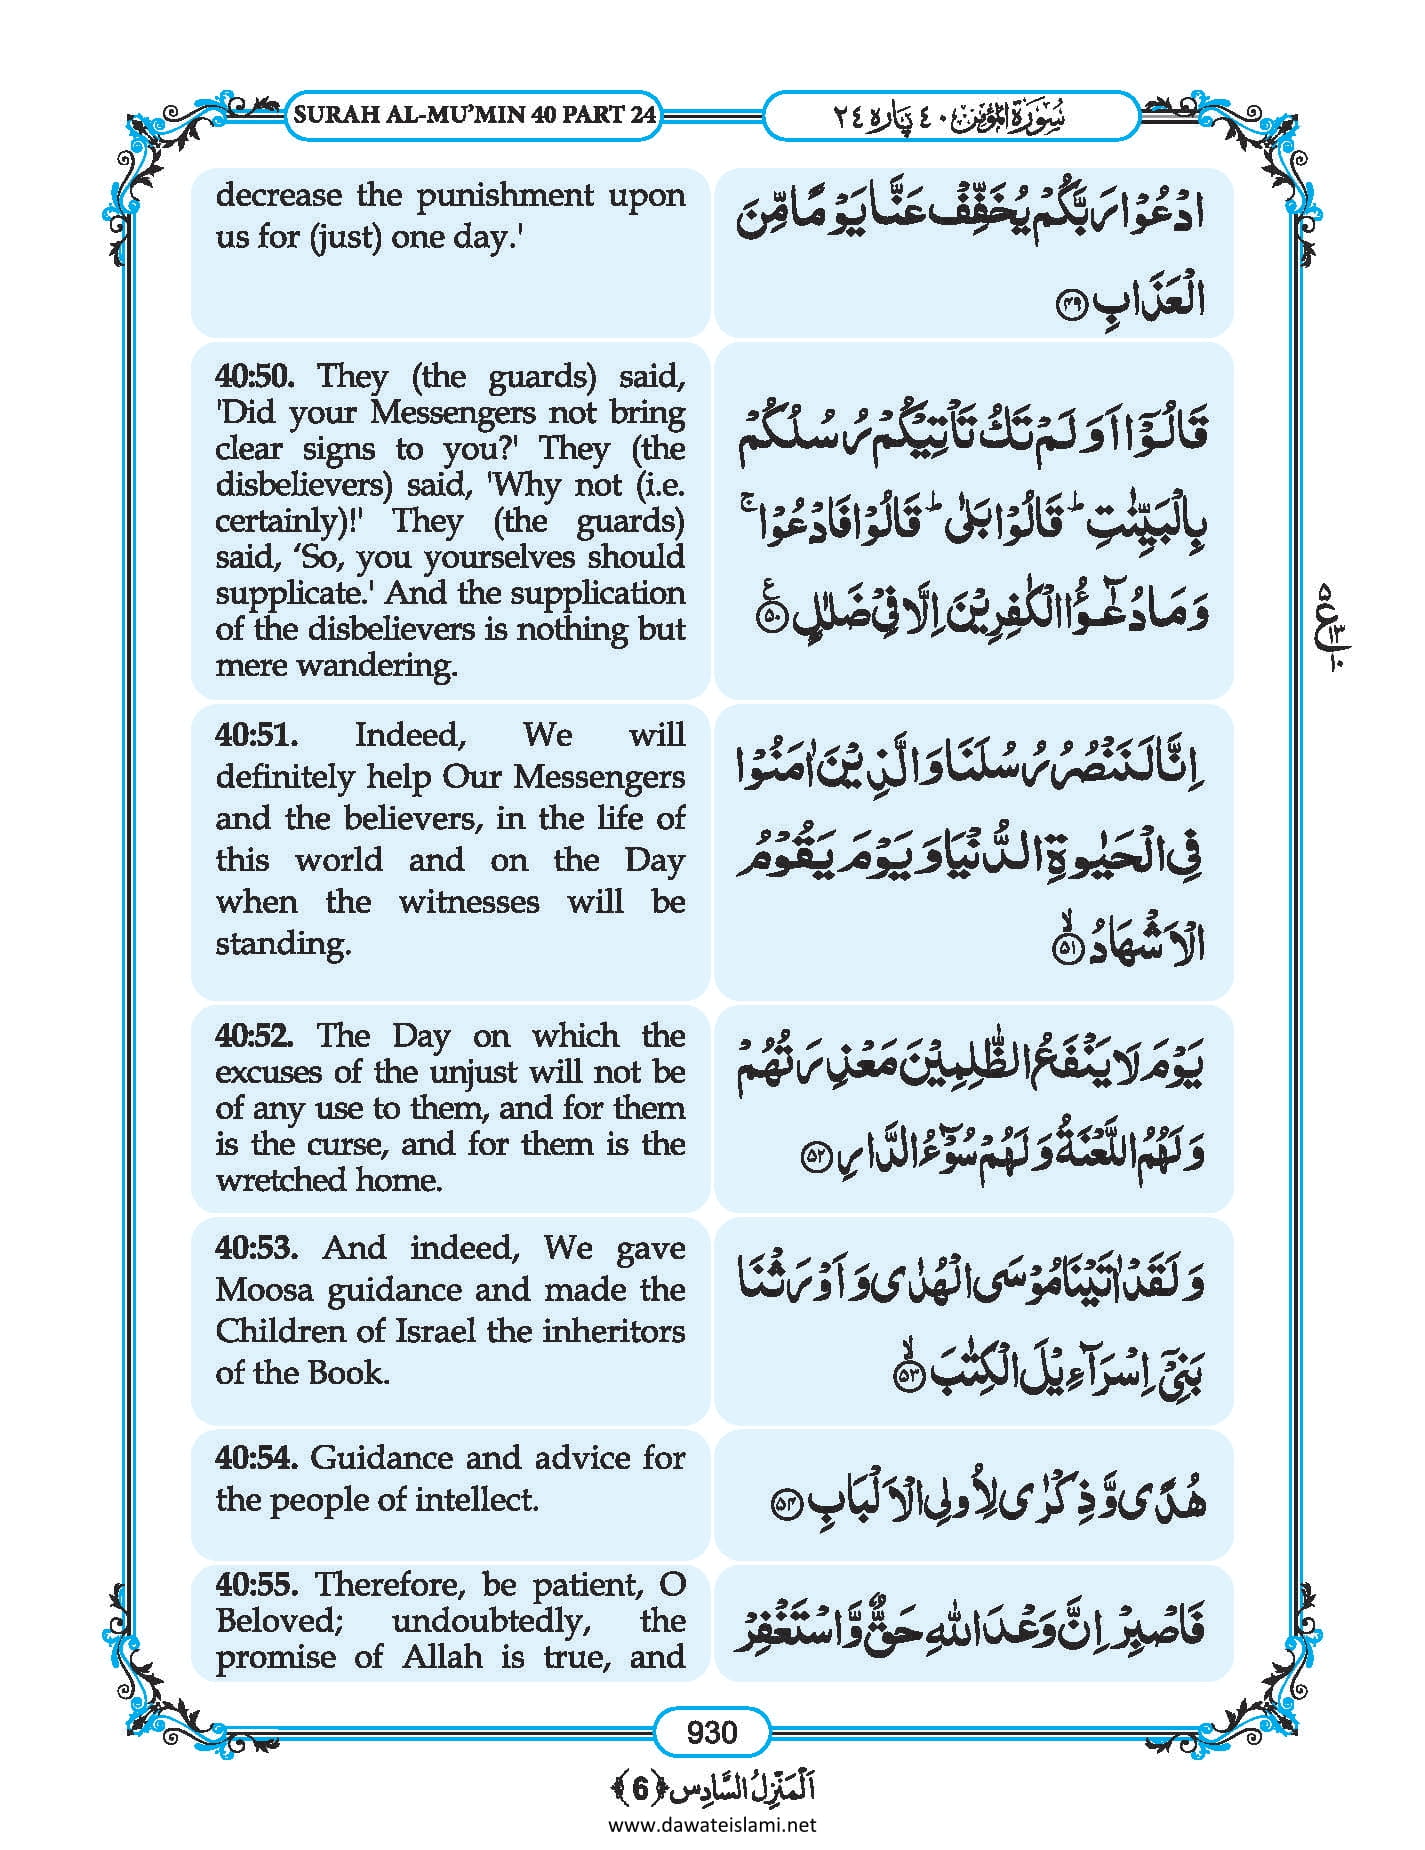 SURAH AL-MU’MIN 40 PART 24
سُوۡرَةُ الۡمُؤۡمِن ٤٠ پَارَہ ٢٤
decrease the punishment upon
us for (just) one day.'
ادۡعُوۡا رَبَّكُمۡ يُخَفِّفۡ عَنَّا يَوۡمًا مِّنَ
الۡعَذَابِ ۝۴۹
40:50. They (the guards) said,
'Did your Messengers not bring
clear signs to you?' They (the
disbelievers) said, 'Why not (i.e.
certainly)!' They (the guards)
said, ‘So, you yourselves should
supplicate.' And the supplication
of the disbelievers is nothing but
mere wandering.
قَالُوۡۤا اَوَلَمۡ تَكُ تَاۡتِيۡكُمۡ رُسُلُكُمۡ
بِالۡبَيِّنٰتِ ؕ قَالُوۡا بَلٰى ؕ قَالُوۡا فَادۡعُوۡا ۚ
وَمَا دُعٰٓؤُا الۡكٰفِرِيۡنَ اِلَّا فِىۡ ضَلٰلٍ ۝۵۰ ع
۵
ع
۱۳
۱۰
40:51. Indeed, We will
definitely help Our Messengers
and the believers, in the life of
this world and on the Day
when the witnesses will be
standing.
اِنَّا لَنَنۡصُرُ رُسُلَنَا وَالَّذِيۡنَ اٰمَنُوۡا
فِى الۡحَيٰوةِ الدُّنۡيَا وَيَوۡمَ يَقُوۡمُ
الۡاَشۡهَادُ ۝۵۱ ۙ
40:52. The Day on which the
excuses of the unjust will not be
of any use to them, and for them
is the curse, and for them is the
wretched home.
يَوۡمَ لَا يَنۡفَعُ الظّٰلِمِيۡنَ مَعۡذِرَتُهُمۡ
وَلَهُمُ اللَّعۡنَةُ وَلَهُمۡ سُوۡٓءُ الدَّارِ ۝۵۲
40:53. And indeed, We gave
Moosa guidance and made the
Children of Israel the inheritors
of the Book.
وَلَقَدۡ اٰتَيۡنَا مُوۡسَى الۡهُدٰى وَاَوۡرَثۡنَا
بَنِىۡۤ اِسۡرَآءِيۡلَ الۡكِتٰبَ ۝۵۳ ۙ
40:54. Guidance and advice for
the people of intellect.
هُدًى وَّذِكۡرٰى لِاُولِى الۡاَلۡبَابِ ۝۵۴
40:55. Therefore, be patient, O
Beloved; undoubtedly, the
promise of Allah is true, and
فَاصۡبِرۡ اِنَّ وَعۡدَ اللّٰهِ حَقٌّ وَّاسۡتَغۡفِرۡ
930
اَلۡمَنۡزِلُ السَّادِس ﴿6﴾
www.dawateislami.net